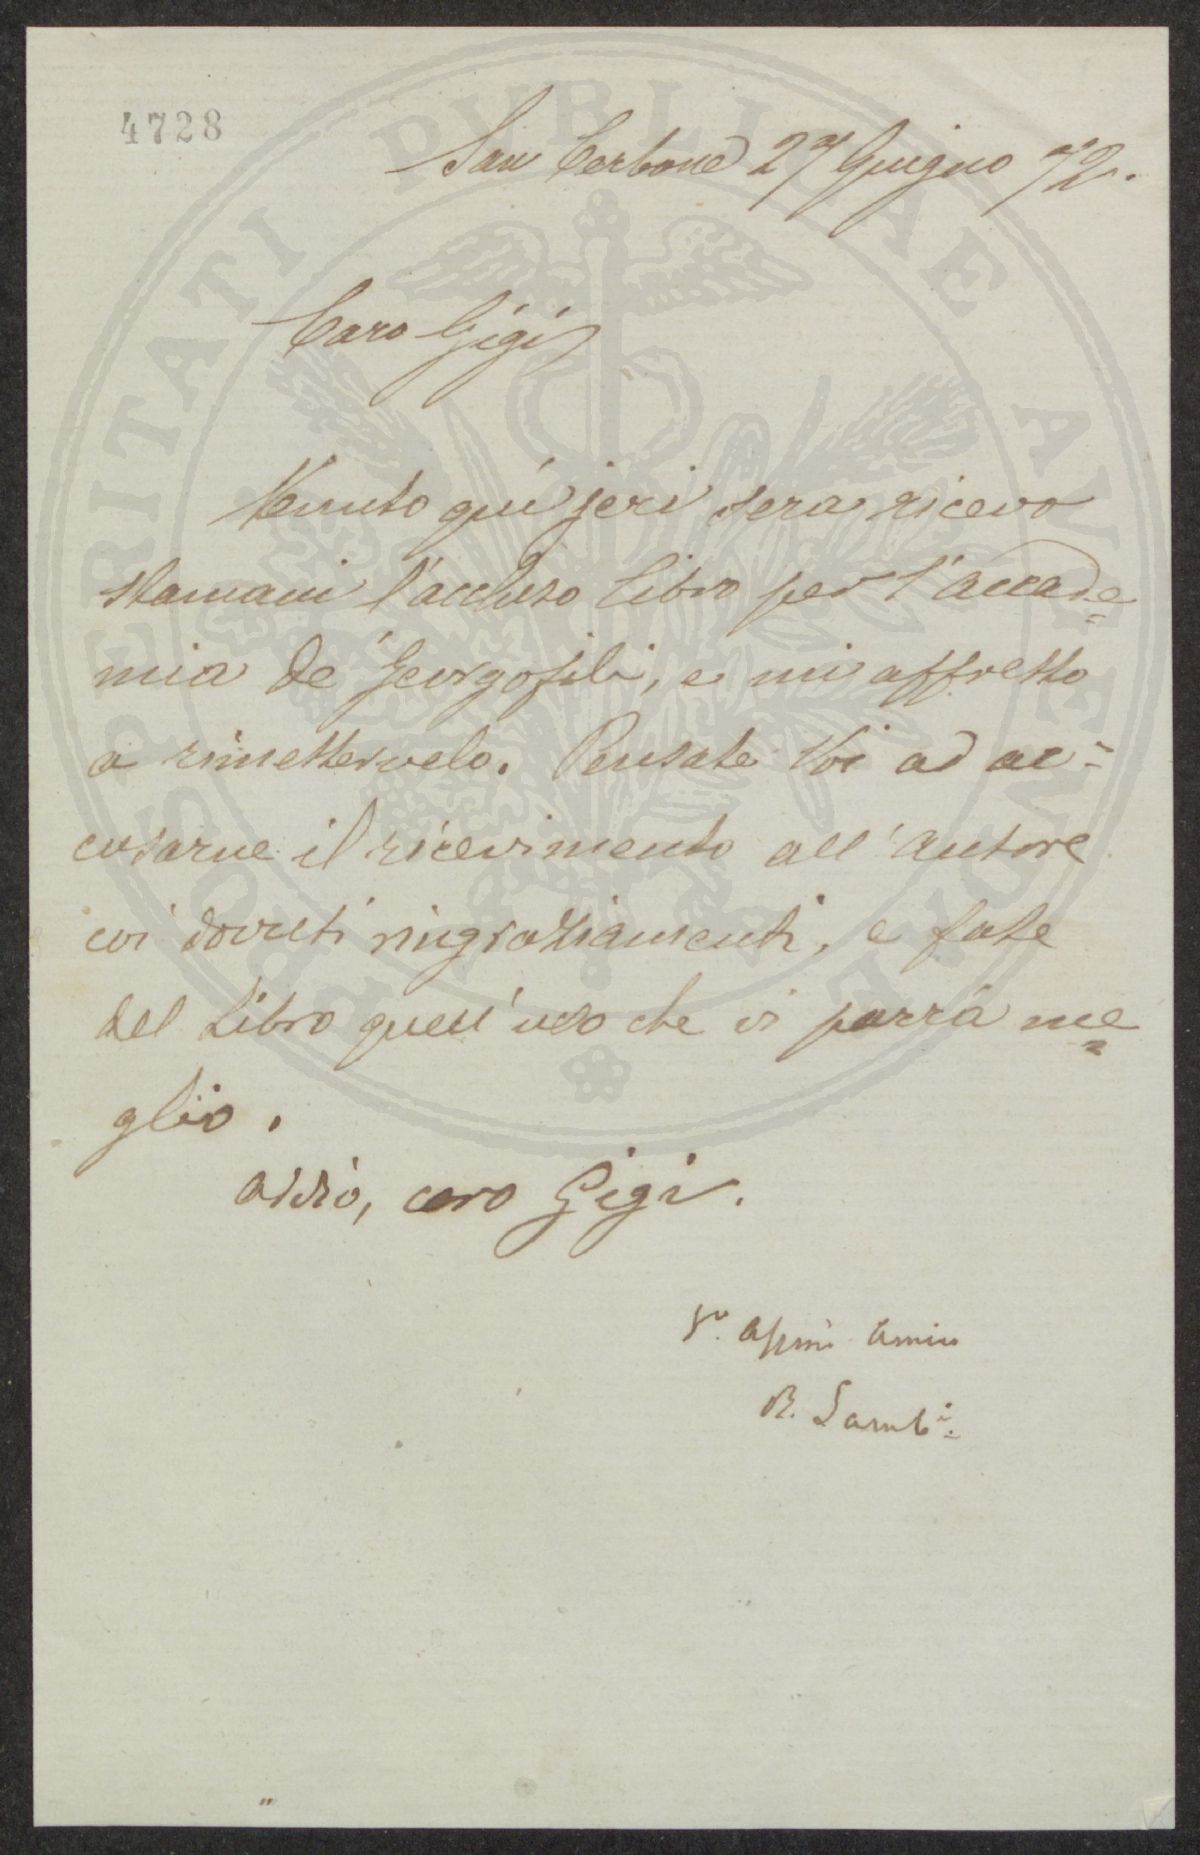 4728
San Cerbone 27 Giugno 72.
Caro Gigi
Venuto qui jeri sera ricevo
stamani l'accluso libro per l'accade=
mia de' Georgofili, e mi affretto
a rimettervelo. Pensate Voi ad ac=
cusarne il ricevimento all'autore
coi dovuti ringraziamenti, e fate
del Libro quell'uso che vi parrà me=
glio.
addio, caro Gigi.
Vo. affmo Amico
R. Lambi.
PROSPERITATI PVBLICAE AVGENDAE